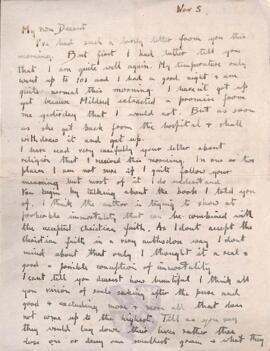 Nov 5
My own Dearest
I've had such a lovely letter from you this
morning. But first I had better tell you
that I am quite well again. My temperature only
went up to 101 and I had a good night & am
quite normal this morning. I haven't got up
yet because Mildred extracted a promise from
me yesterday that I would not. But as soon
as she gets back from the hospital I shall
withdraw it and get up.
I have read very carefully your letter about
religion that I received this morning. In one or two
places I am not sure if I quite follow your
meaning but most of it I do understand
You begin by talking about the book I told you
of. I think the author is trying to show a
probable immortality that can be combined with
the accepted Christian faith. As I don't accept the
Christian faith in a very orthodox way I don't
mind about that only I thought it a real &
good & possible conception of immortality
I can't tell you dearest how beautiful I think all
you vision of souls seeking after the pure and
good & excluding from all that does
not come up to the highest. Till as you say
they would lay down their lives rather than
lose one or deny one smallest grain of what they